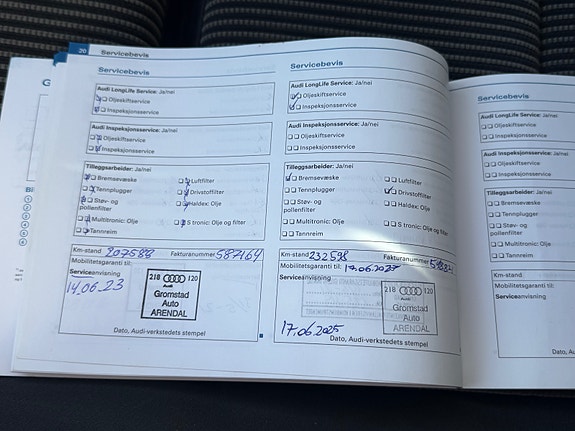 20 Servicebevis
Servicebevis
Audi LongLife Service: Ja/nei
Oljeskiftservice
Inspeksjonsservice
Audi Inspeksjonsservice: Ja/nei
Oljeskiftservice
Inspeksjonsservice
Tilleggsarbeider: Ja/nei
Bremsevæske
Luftfilter
Tennplugger
Drivstoffilter
Støv- og
pollenfilter
Haldex: Olje
Multitronic: Olje
S tronic: Olje og filter
Tannreim
Km-stand 207588 Fakturanummer 587464
Mobilitetsgaranti til:
Serviceanvisning
14.06.23
218 120
Audi
Gromstad
Auto
ARENDAL
Dato, Audi-verkstedets stempel
Servicebevis
Audi LongLife Service: Ja/nei
Oljeskiftservice
Inspeksjonsservice
Audi Inspeksjonsservice: Ja/nei
Oljeskiftservice
Inspeksjonsservice
Tilleggsarbeider: Ja/nei
Bremsevæske
Luftfilter
Tennplugger
Drivstoffilter
Støv- og
pollenfilter
Haldex: Olje
Multitronic: Olje
S tronic: Olje og filter
Tannreim
Km-stand 232598 Fakturanummer
Mobilitetsgaranti til: 17.06.2027
Serviceanvisning
17.06.2025
218 120
Audi
Gromstad
Auto
ARENDAL
Dato, Audi-verkstedets stempel
Servicebevis
Audi LongLife Service: Ja/nei
Oljeskiftservice
Inspeksjonsservice
Audi Inspeksjonsservice: Ja/nei
Oljeskiftservice
Inspeksjonsservice
Tilleggsarbeider: Ja/nei
Bremsevæske
Tennplugger
Støv- og
pollenfilter
Multitronic: Olje
Tannreim
Km-stand
Mobilitetsgaranti til:
Serviceanvisning